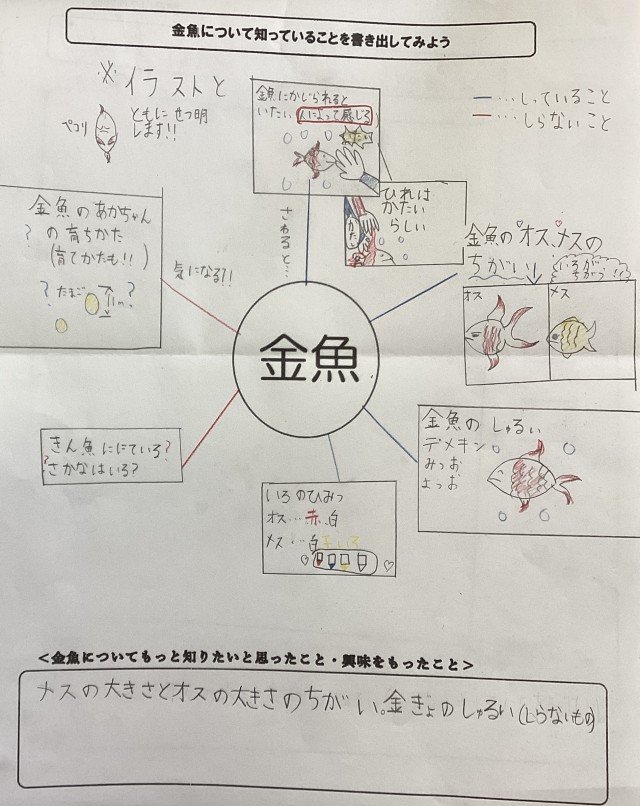 金魚について知っていることを書き出してみよう
※イラストと
ともにせつ明
します!!
ペコリ
金魚にかじられると
いたい 人によって感じる
ひれは
かたい
らしい
かたい
さわると…
…しっていること
…しらないこと
金魚のオス、メスの
ちがい!
いろが
ちがう!!
オス
メス
金魚のあかちゃん
?の育ちかた
(育てかたも!!)
?たまご
?
気になる!!
金魚
金魚のしゅるい
デメキン
みつお
きん魚ににている?
?さかなはいる?
いろのひみつ
オス…赤、白
メス…白きいろ
<金魚についてもっと知りたいと思ったこと・興味をもったこと>
メスの大きさとオスの大きさのちがい。金ぎょのしゅるい(しらないもの)